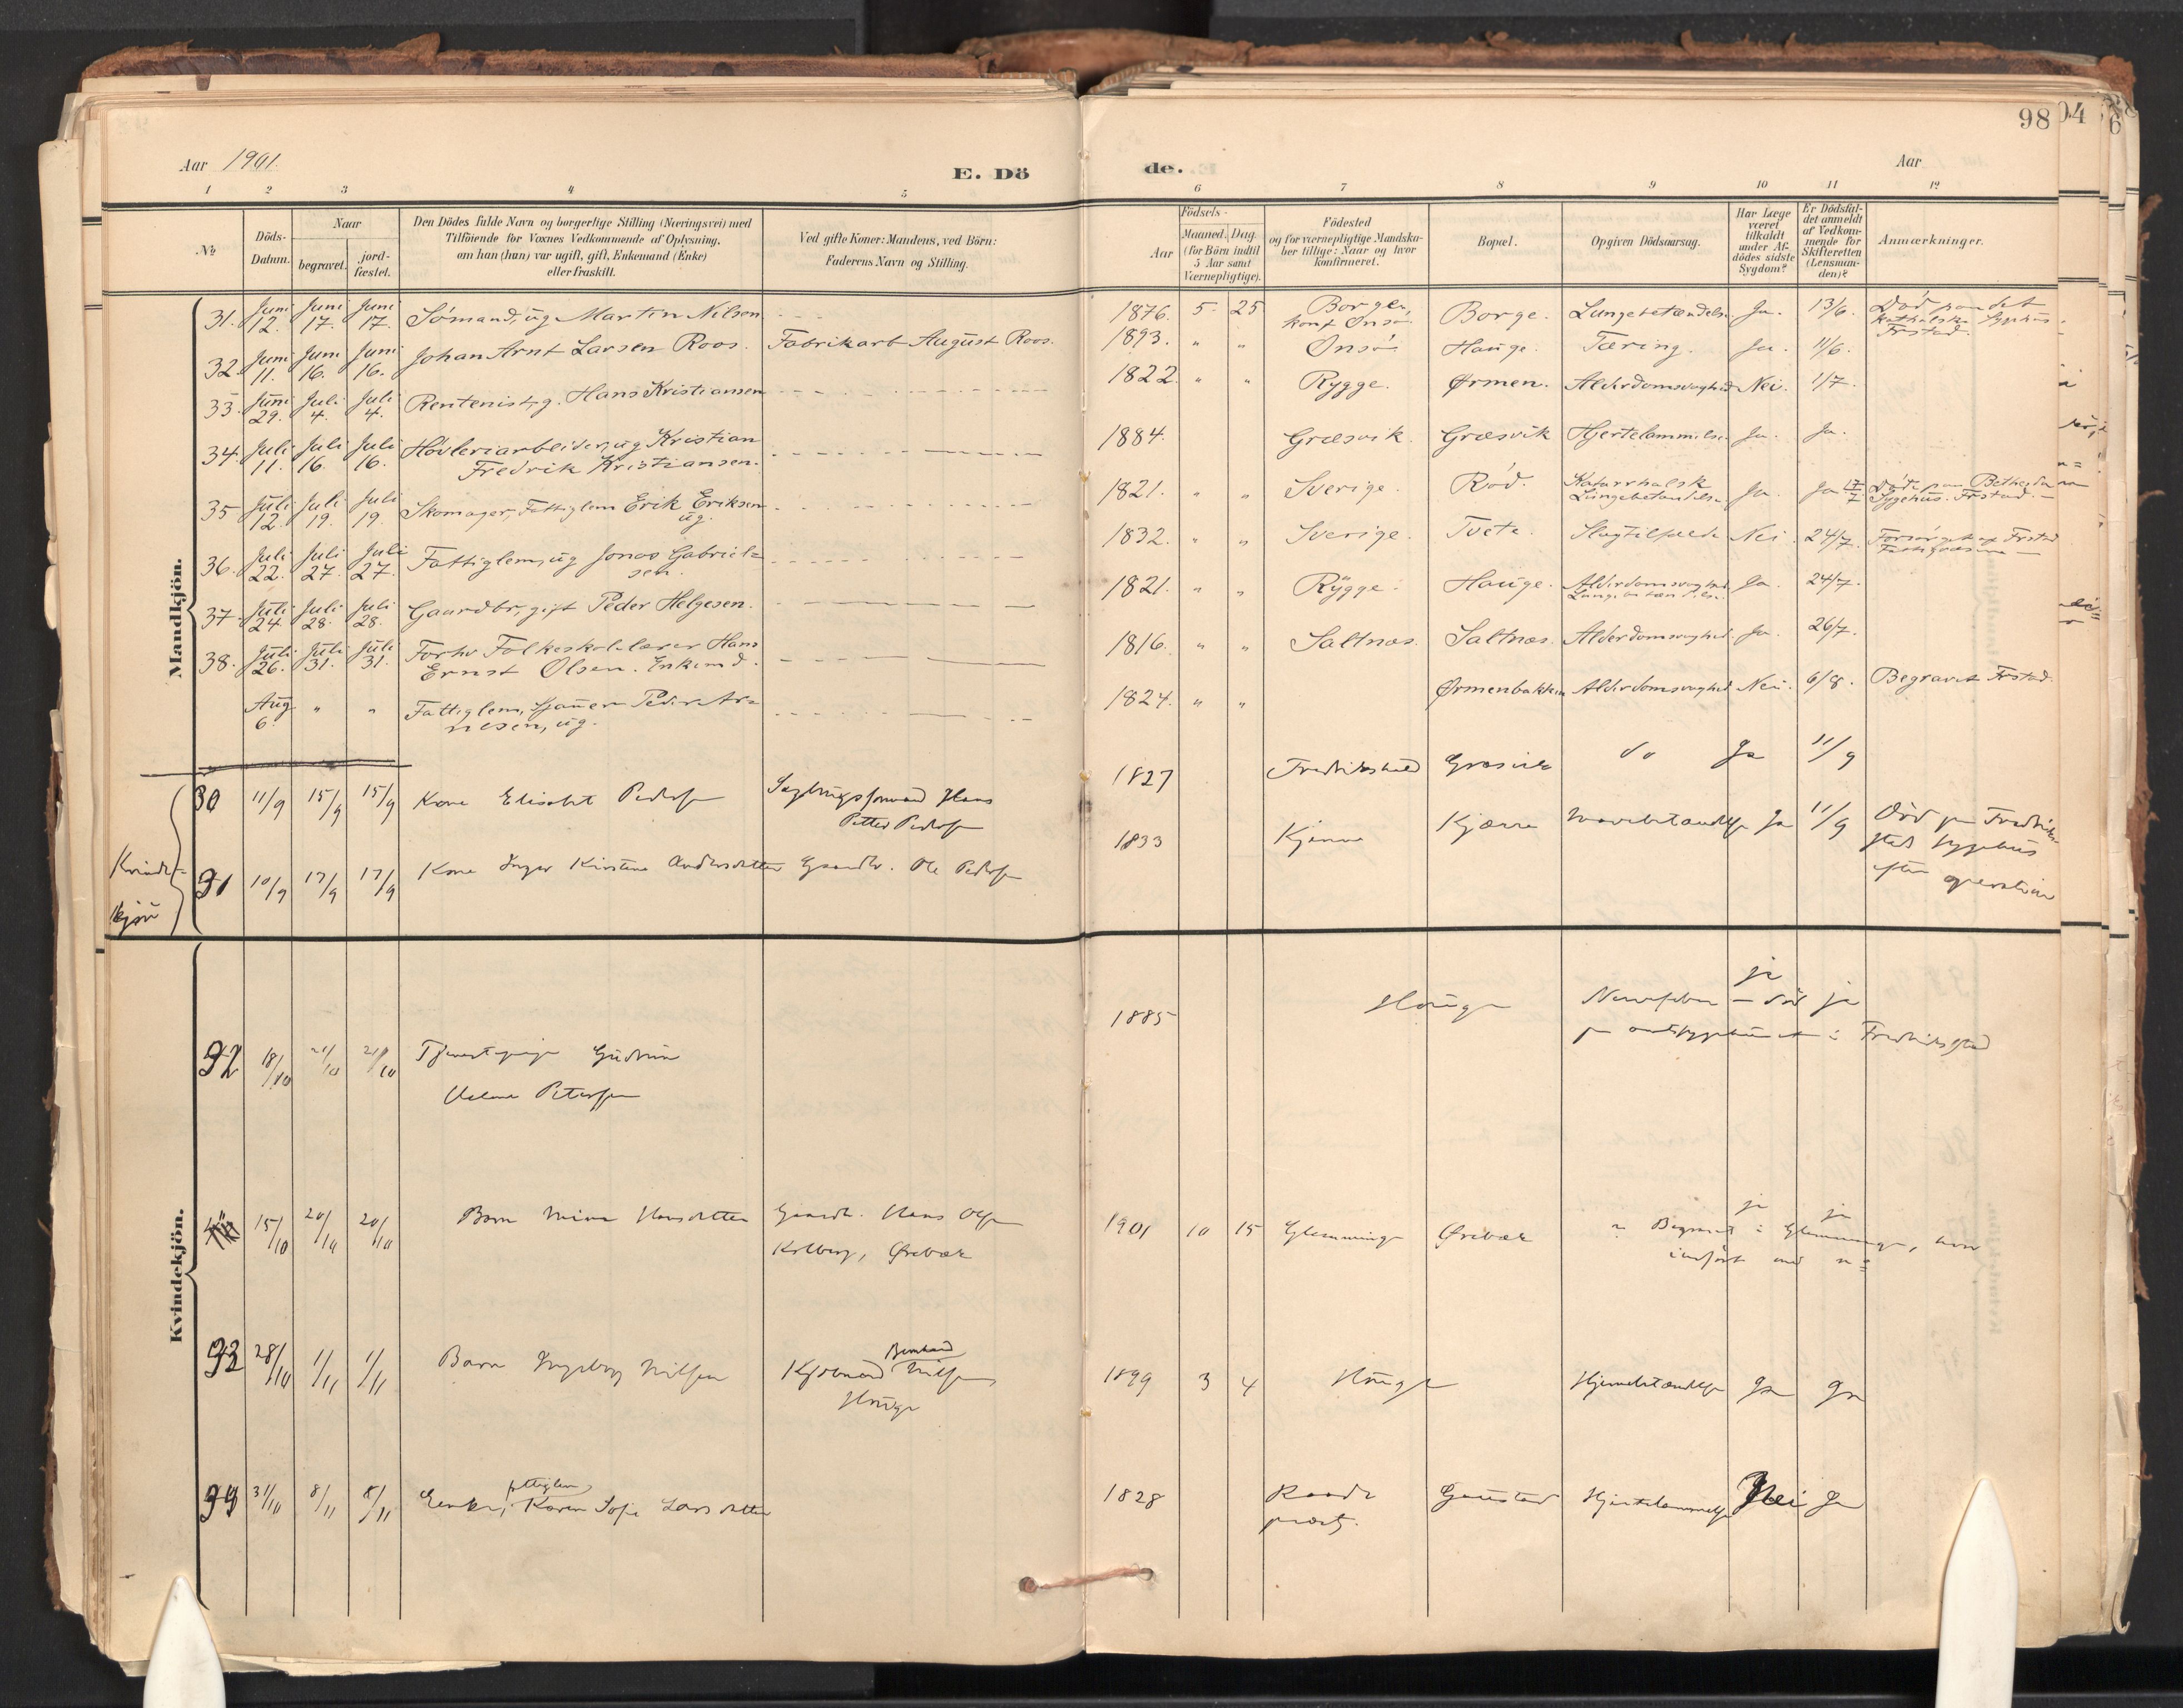 98
04
6
Aar 1901.
E. Dö
de.
Aar
1 2 3 4 5 6 7 8 9 10 11 12
No
Döds-
Datum.
Naar
begravet.
jord-
fæstet.
Den Dödes fulde Navn og borgerlige Stilling (Næringsvei) med
Tilföiende for Voxnes Vedkommende af Oplysning,
om han (hun) var ugift, gift, Enkemand (Enke)
eller fraskilt.
Ved gifte Koner: Mandens, ved Börn:
Faderens Navn og Stilling.
Födsels-
Aar
Maaned. Dag.
(for Börn indtil
5 Aar samt
Værnepligtige).
Födested
og for værnepligtige Mandska-
ber tillige: Naar og hvor
konfirmeret.
Bopæl.
Opgiven Dödsaarsag.
Har Læge
været
tilkaldt
under Af-
dödes sidste
Sygdom?
Er Dödsfal-
det anmeldt
af Vedkom-
mende for
Skifteretten
(Lensman-
den)?
Anmærkninger.
Mandkjön.
31. Juni 12. Juni 17. Juni 17. Sömand, ug Martin Nilsen
1876. 5. 25. Borge, konf Onsö Borge. Lungebetændelse Ja. 13/6. Död paa det
katholske Sygehus
Frstad.
32. Juni 11. Juni 16. Juni 16. Johan Arnt Larsen Roos. Fabrikarb August Roos.
1893. " " Onsö Hauge. Tæring. Ja. 11/6.
33. Juni 29. Juli 4. Juli 4. Rentenist, g. Hans Kristiansen
1822. " " Rygge. Ørmen. Alderdomssvaghed Nei. 1/7.
34. Juli 11. Juli 16. Juli 16. Hövleriarbeider, ug Kristian
Fredrik Kristiansen.
1884. Græsvik. Græsvik Hjertelammelse Ja. Ja.
35 Juli 12. Juli 19. Juli 19. Skomager, Fattiglem Erik Eriksen
ug.
1821. " " Sverige. Röd. Katarrhalsk
Lungebetændelse Ja. Ja 17/7 Döde paa Bethesda
Sygehus. Frstad.
36. Juli 22. Juli 27. Juli 27. Fattiglem, ug Jonas Gabriel=
sen.
1832. " " Sverige. Tvete. Slagtilfælde Nei. 24/7. Forsörget af Frstad
37. Juli 24. Juli 28. Juli 28. Gaardbr, gift Peder Helgesen.
1821. " " Rygge. Hauge. Alderdomssvaghed
Lungebetændelse Ja. 24/7.
38. Juli 26. Juli 31. Juli 31. Forhv Folkeskolelærer Hans
Ernst Olsen. Enkemd.
1816. " " Saltnæs. Saltnæs. Alderdomssvaghed. Ja. 26/7.
Aug 6. " " Fattiglem, Sjauer Peder Ar=
nesen, ug.
1824. " " Ørmenbakken Alderdomssvaghed Nei. 6/8. Begravet Frstad.
Kvinde-
kjön
30 11/9 15/9 15/9 Kone Elisabet Pedersen Hans
Petter Pedersen
1827 Fredrikshald Græsvik do Ja 11/9
31 10/9 17/9 17/9 Kone Inger Kirstine Andersdatter Gaardbr. Ole Pedersen
1833 Kjærre Kjærre Mavebetændelse Ja 11/9 Död paa Fredrik-
stad sygehus
efter operation
Kvindekjön.
32 18/10 21/10 21/10 Tjenestepige Gudrun
Petersen
1885 Hauge Nervefeber — död ja ja
paa amtssygehuset i Fredrikstad
15/10 20/10 20/10 Barn Hansdatter Gaardbr. Hans Olsen
Kolberg, Örebæk
1901 10 15 Glemminge Örebæk ja ja
Begravet i Glemminge, hvor
indført med no
33 28/10 1/11 1/11 Barn Ingeborg Nilsen Bernhard
Nilsen
Hauge
1899 3 4 Hauge Hjernebetændelse Ja Ja
34 31/10 8/11 8/11 fattiglem
Enke, Karen Sofie Larsdatter
1828 Raade
præstg. Gaustad Hjertelammelse Nei Ja